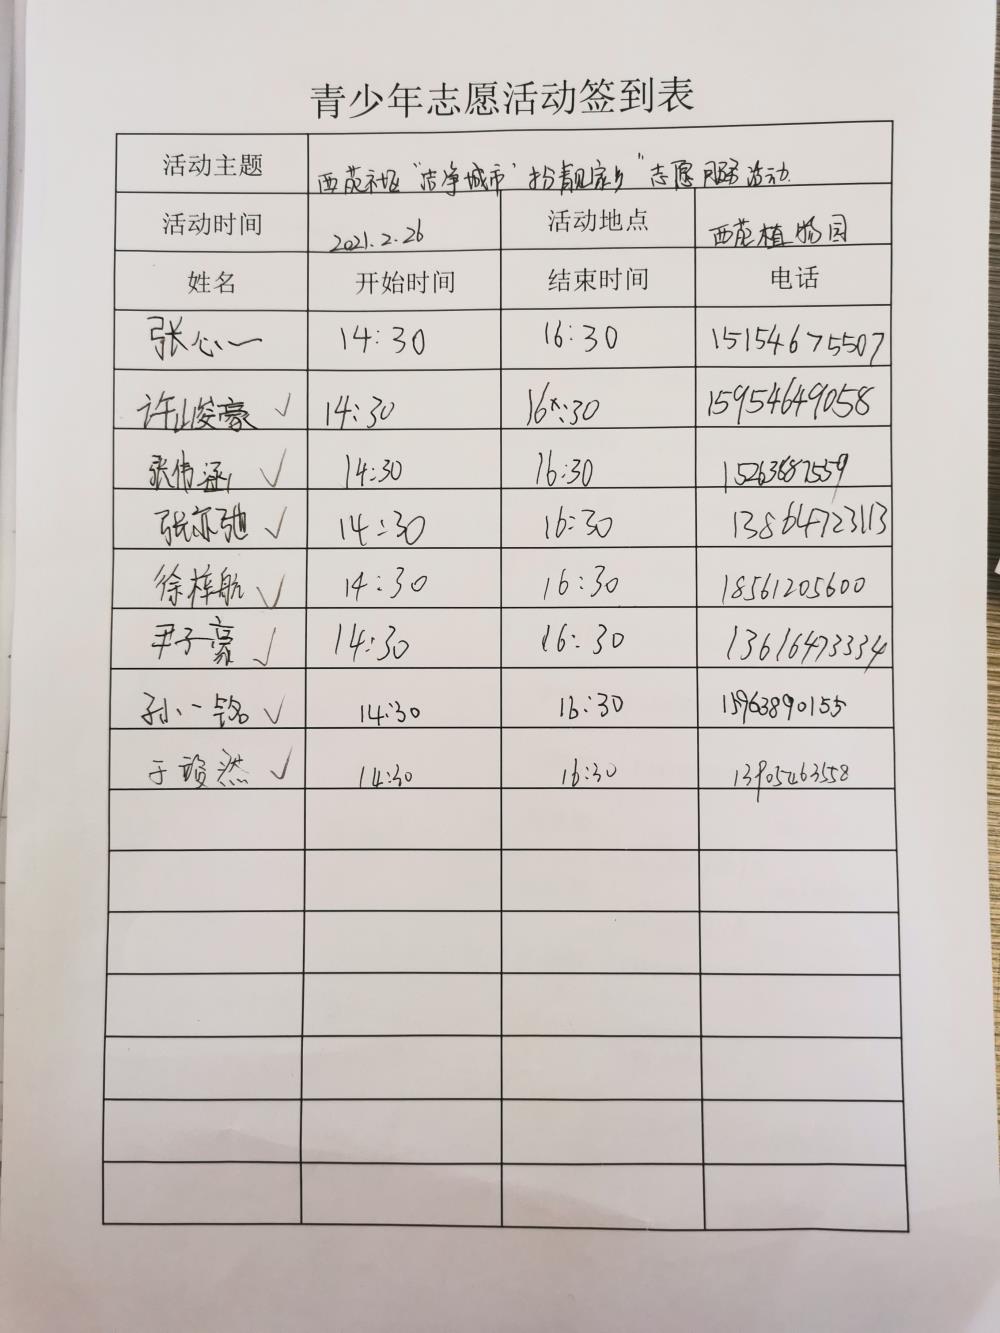 青少年志愿活动签到表
活动主题 西苑社区“洁净城市 扮靓家乡”志愿服务活动.
活动时间 2021.2.26 活动地点 西苑植物园
姓名 开始时间 结束时间 电话
张心一 14:30 16:30 15154675507
许峻豪 ✓ 14:30 16:30 15954649058
张伟涵 ✓ 14:30 16:30
张亦弛 ✓ 14:30 16:30 13864723113
徐梓航 ✓ 14:30 16:30 18561205600
尹子豪 ✓ 14:30 16:30 13616473334
孙一铭 ✓ 14:30 16:30 15963890155
于 ✓ 14:30 16:30 13905463558